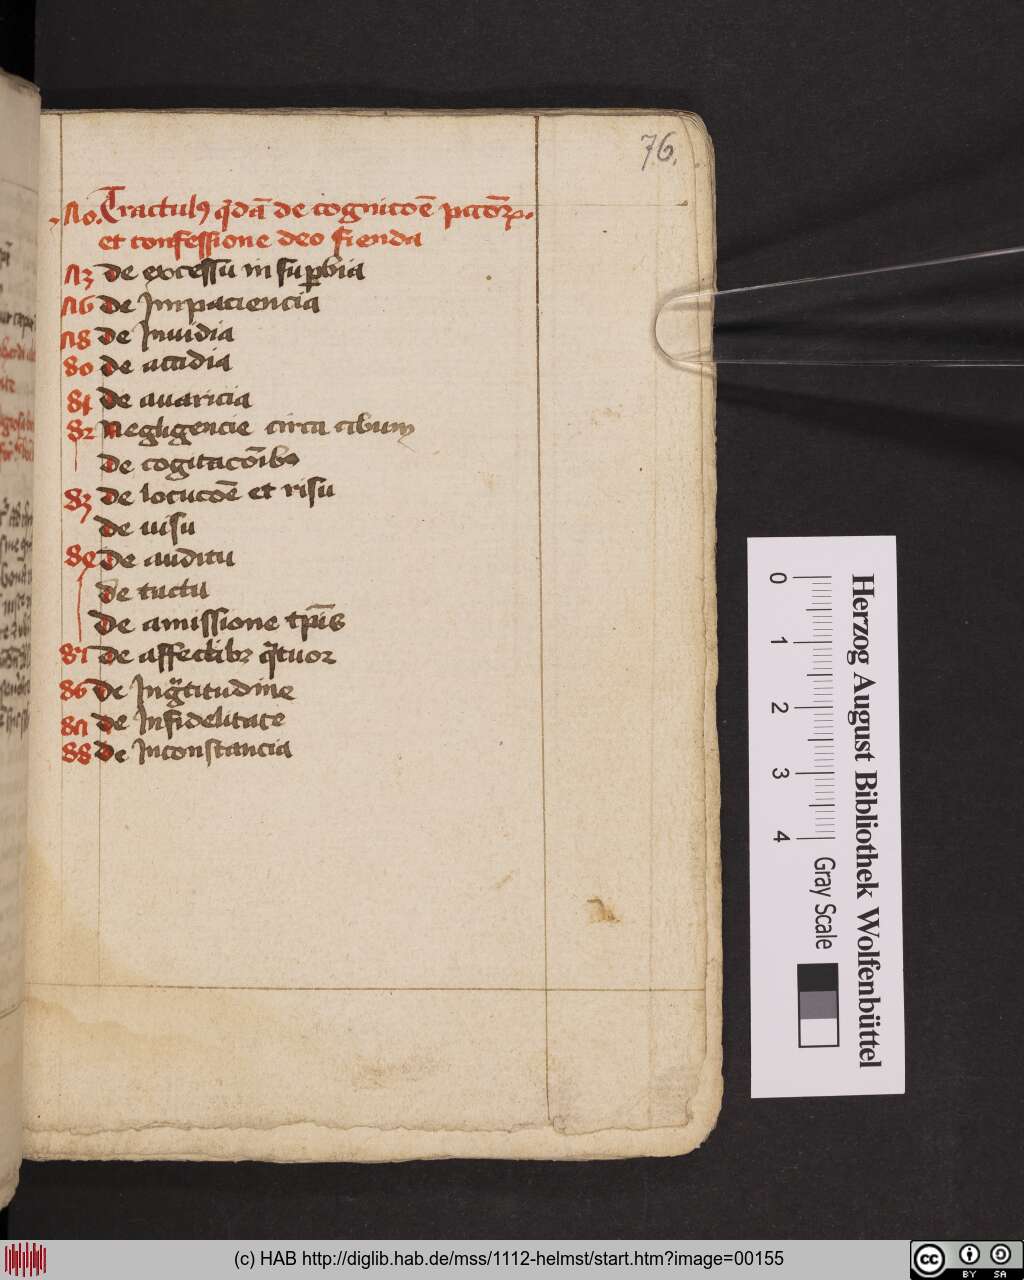 76.
70. Tractulꝰ qͥdā de cognicōe pctōꝝ.
et confessione deo fienda
73 de excessu in suꝑbia
76 de Impaciencia
78 de Inuidia
80 de accidia
81 de auaricia
82 Negligencie circa cibum
de cogitacōibꝫ
83 de locucōe et risu
de uisu
84 de auditu
de tactu
de amissione tp̄is
85 de affectibꝫ qͣtuor
86 de Ingͣtitudine
87 de Infidelitate
88 de Inconstancia
Herzog August Bibliothek Wolfenbüttel
0 1 2 3 4 Gray Scale
(c) HAB http://diglib.hab.de/mss/1112-helmst/start.htm?image=00155
cc BY SA